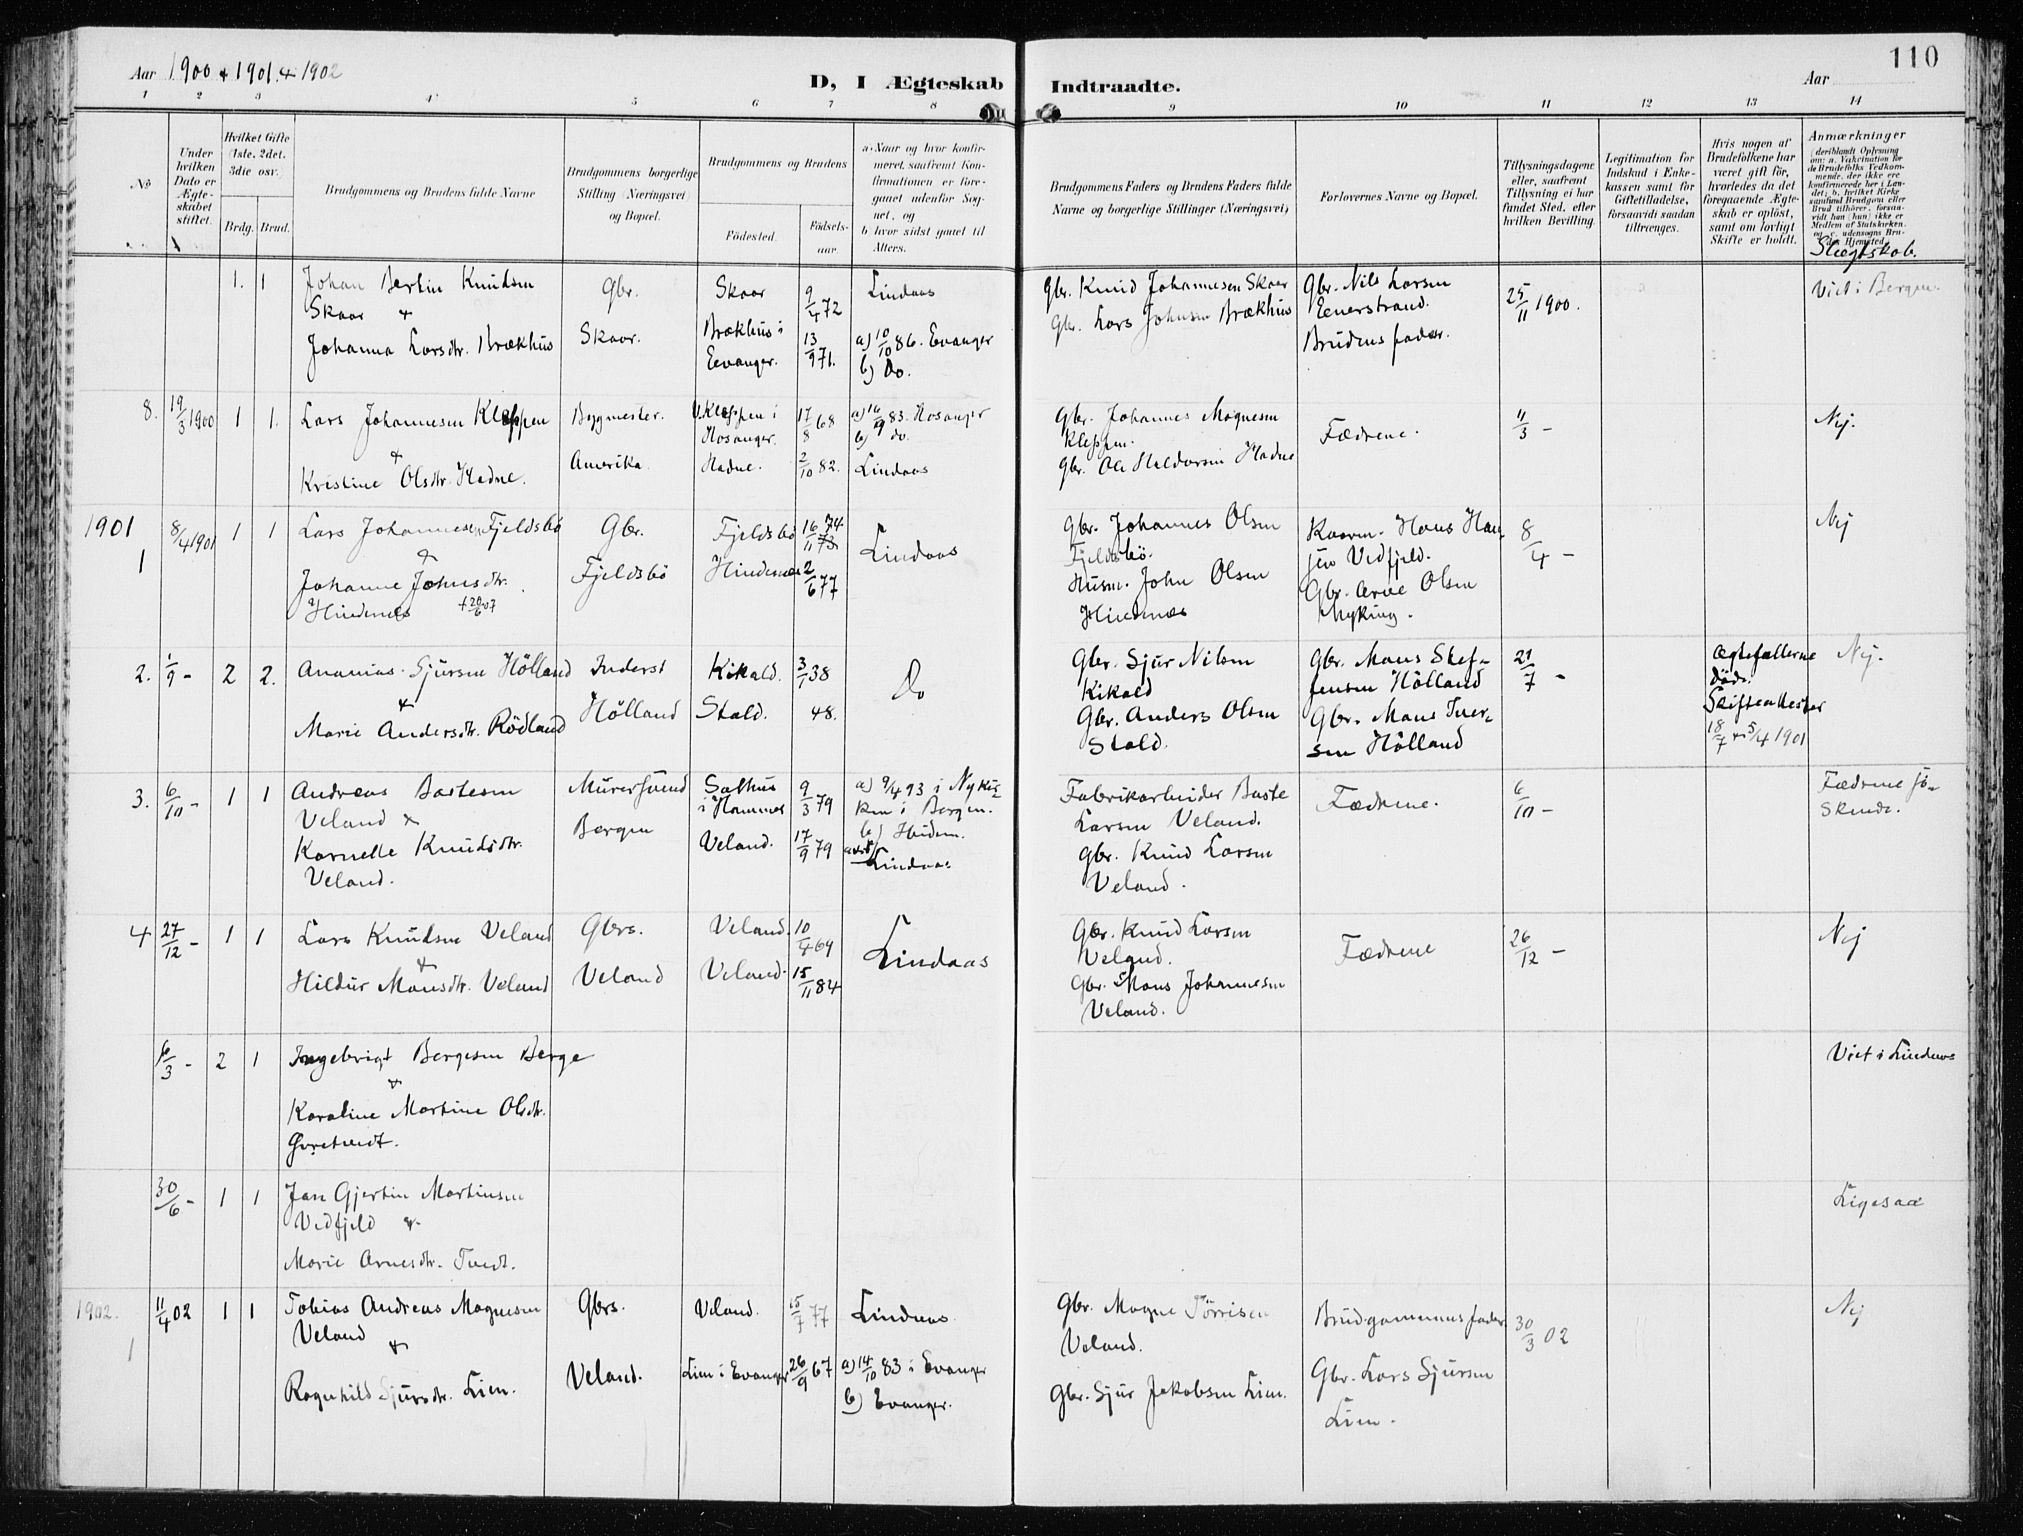 110
Aar 1900 & 1901. & 1902
D, I Ægteskab Indtraadte.
Aar
1 2 3 4 5 6 7 8 9 10 11 12 13 14
No
Under hvilken Dato er Ægteskabet stiftet.
Hvilket Gifte (1ste, 2det, 3die osv.)
Brdg. Brud.
Brudgommens og Brudens fulde Navne
Brudgommens borgerlige Stilling (Næringsvei) og Bopæl.
Brudgommens og Brudens
Fødested.
Fødselsaar.
a. Naar og hvor konfirmeret, saafremt Konfirmationen er foregaaet udenfor Sognet, og
b. hvor sidst gaaet til Alters.
Brudgommens Faders og Brudens Faders fulde Navne og borgerlige Stillinger (Næringsvei)
Forlovernes Navne og Bopæl.
Tillysningsdagene eller, saafremt Tillysning ei har fundet Sted, efter hvilken Bevilling.
Legitimation for Indskud i Enkekassen samt for Giftetilladelse, forsaavidt saadan tiltrænges.
Hvis nogen af Brudefolkene har været gift før, hvorledes da det foregaaende Ægteskab er opløst, samt om lovligt Skifte er holdt.
Anmærkninger
(deriblandt Oplysning om: a. Vakcination for de Brudefolks Vedkommende, der ikke ere konfirmerede her i Landet; b. hvilket Kirkesamfund Brudgom eller Brud tilhører, forsaavidt han (hun) ikke er Medlem af Statskirken, og c. udensogns Brudes Hjemsted.
Slægtskab.
1. 1
Johan Bertin Knudsen
Skaar &
Johanna Larsdtr. Brækhus
Gbr.
Skaar.
Skaar
Brækhus i
Evanger.
9/4 72
13/9 71.
Lindaas
a) 10/10 86. Evanger
b) Do.
Gbr. Knud Johannesen Skaar
Gbr. Lars Johnsen Brækhus
Gbr. Nils Larsen
Eenerstrand.
Brudens fader.
25/11 1900.
Viet i Bergen.
8. 19/3 1900 1 1.
Lars Johannesen Kleppen
&
Kristine Olsdtr. Hadne.
Bygmester.
Amerika.
Kleppen i
Hosanger.
Hadne.
17/8 68
2/10 82.
a) 16/9 83. Hosanger
b) do.
Lindaas
Gbr. Johannes Magnesen
Kleppen.
Gbr. Ole Haldorsen Hadne
Fædrene.
11/3 -
Nej.
1901
1
8/4 1901 1 1
Lars Johannesen Fjeldsbö
&
Johanne Johnsdtr.
Hindenes †20/6 07
Gbr.
Fjeldsbö
Fjeldsbö
Hindenes
16/11 74
73.
2/6 77
Lindaas
Gbr. Johannes Olsen
Fjeldsbö.
Husm. John Olsen
Hindenæs
Kaarm. Hans Han-
sen Vedfjeld.
Gbr. Arne Olsen
Myking.
8/4 -
Nej
2. 1/9 - 2 2.
Ananias Sjursen Hölland
&
Marie Andersdtr. Rödland
Inderst
Hölland
Kikald.
Stald.
3/1 38
48.
Do
Gbr. Sjur Nilsen
Kikald
Gbr. Anders Olsen
Stald.
Gbr. Mons Stef-
fensen Hölland
Gbr. Mons Iver-
sen Hölland
21/7 -
Ægtefællerne
döde.
Skifteattester
18/7 & 5/4 1901
Nej.
3. 6/10 - 1 1
Andreas Bastesen
Veland &
Kornelle Knudsdtr.
Veland.
Murersvend
Bergen
Salhus
i Hammer
Veland.
9/3 79
17/9 79
a) 9/4 93 i Nykir-
ken i Bergen.
b) Ibidem.
Lindaas
Fabrikarbeider Baste
Larsen Veland.
Gbr. Knud Larsen
Veland.
Fædrene.
6/10 -
Fædrene sö-
skende.
4 27/12 - 1 1
Lars Knudsen Veland
&
Hildur Monsdtr. Veland
Gbrs.
Veland
Veland.
Veland.
10/4 69
15/11 84
Lindaas
Gbr. Knud Larsen
Veland.
Gbr. Mons Johannesen
Veland.
Fædrene
26/12 -
Nej
6/3 - 2 1
Ingebrigt Bergesen Berge
&
Karoline Martine Olsdtr.
Øvretvedt.
Viet i Lindaas
30/6 - 1 1
Jan Gjertin Martinsen
Vedfjeld &
Marie Arnesdtr. Tvedt.
Ligesaa
1902.
1
11/4 02 1 1
Tobias Andreas Magnesen
Veland
&
Ragnhild Sjursdtr. Lien.
Gbrs.
Veland.
Veland.
Lien i Evanger
15/7 77
26/9 67
Lindaas.
a) 14/10 83 i Evanger
b) Evanger.
Gbr. Magne Törrisen
Veland.
Gbr. Sjur Jakobsen Lien.
Brudgommens fader
Gbr. Lars Sjursen
Lien.
30/3 02
Nej